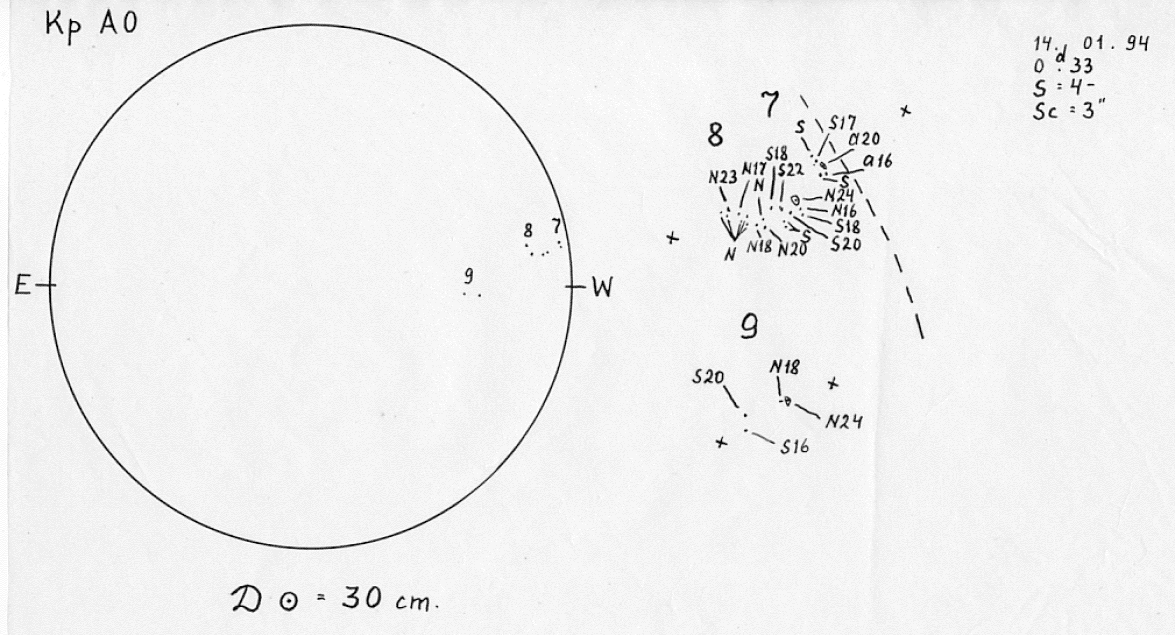 Кр АО
14. 01. 94
0 d. 33
S = 4-
Sc = 3"
7
8
S
S17
a20
a16
S
S18
S22
N23
N17
N
N24
N16
S18
S20
N
N18
N20
S
8
7
9
E
W
9
S20
N18
N24
S16
D ⊙ = 30 cm.